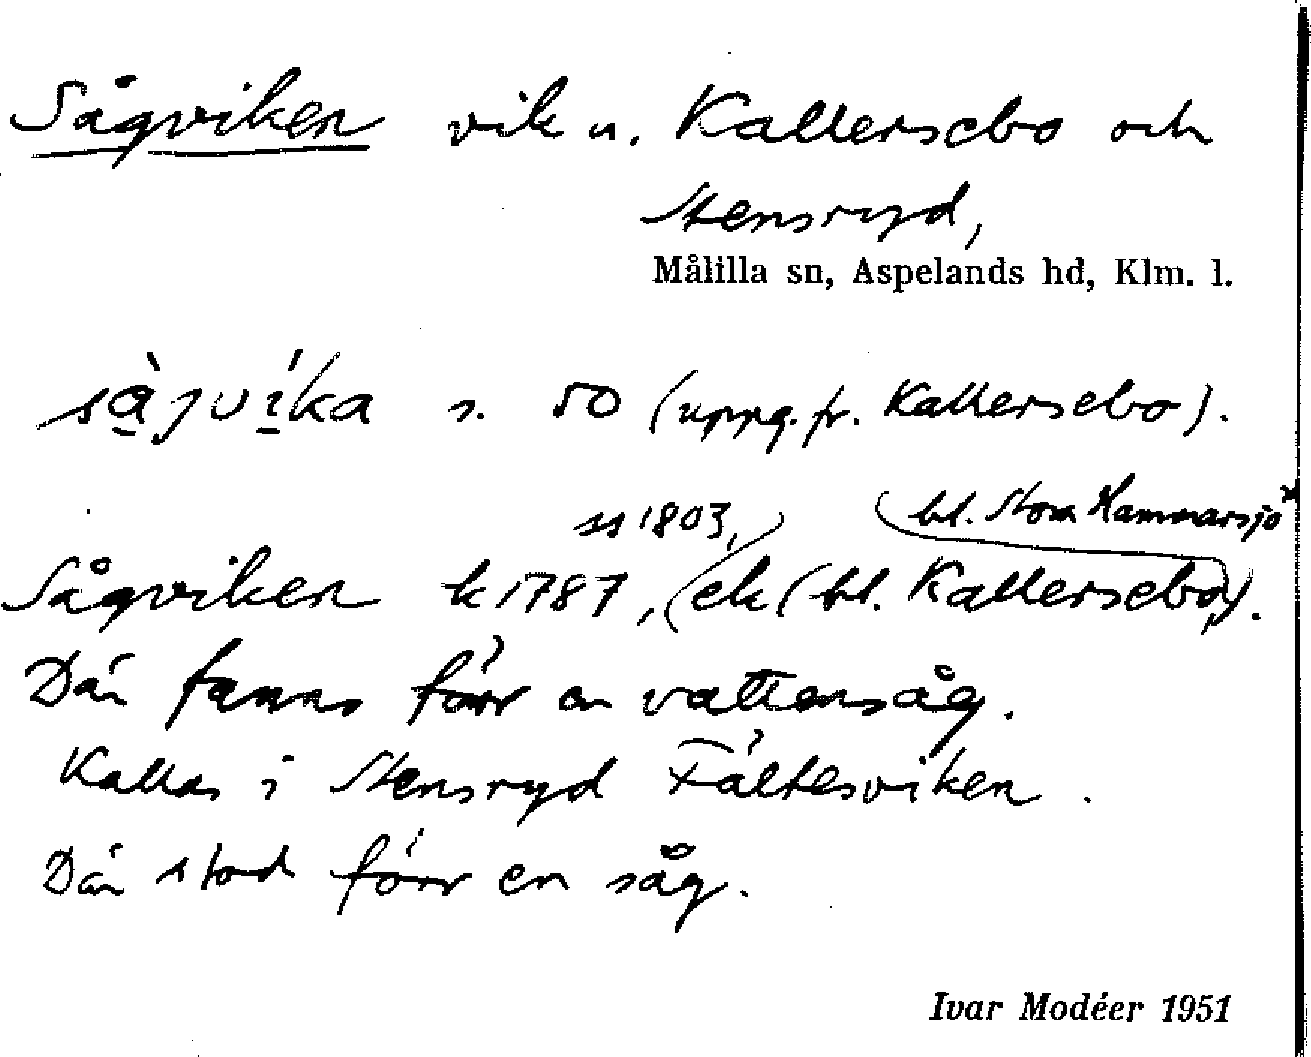 Sågviken vik u. Kallersebo och
Stensryd,
Målilla sn, Aspelands hd, Klm. l.
så̱jvi̱ka s. 50 (uppg. fr. Kallersebo).
ss 1803, bl. Stora Hammarsjö
Sågviken k 1787, ek (bl. Kallersebo).
Där fanns förr en vattensåg.
Kallas i Stensryd Fältesviken.
Där stod förr en såg.
Ivar Modéer 1951